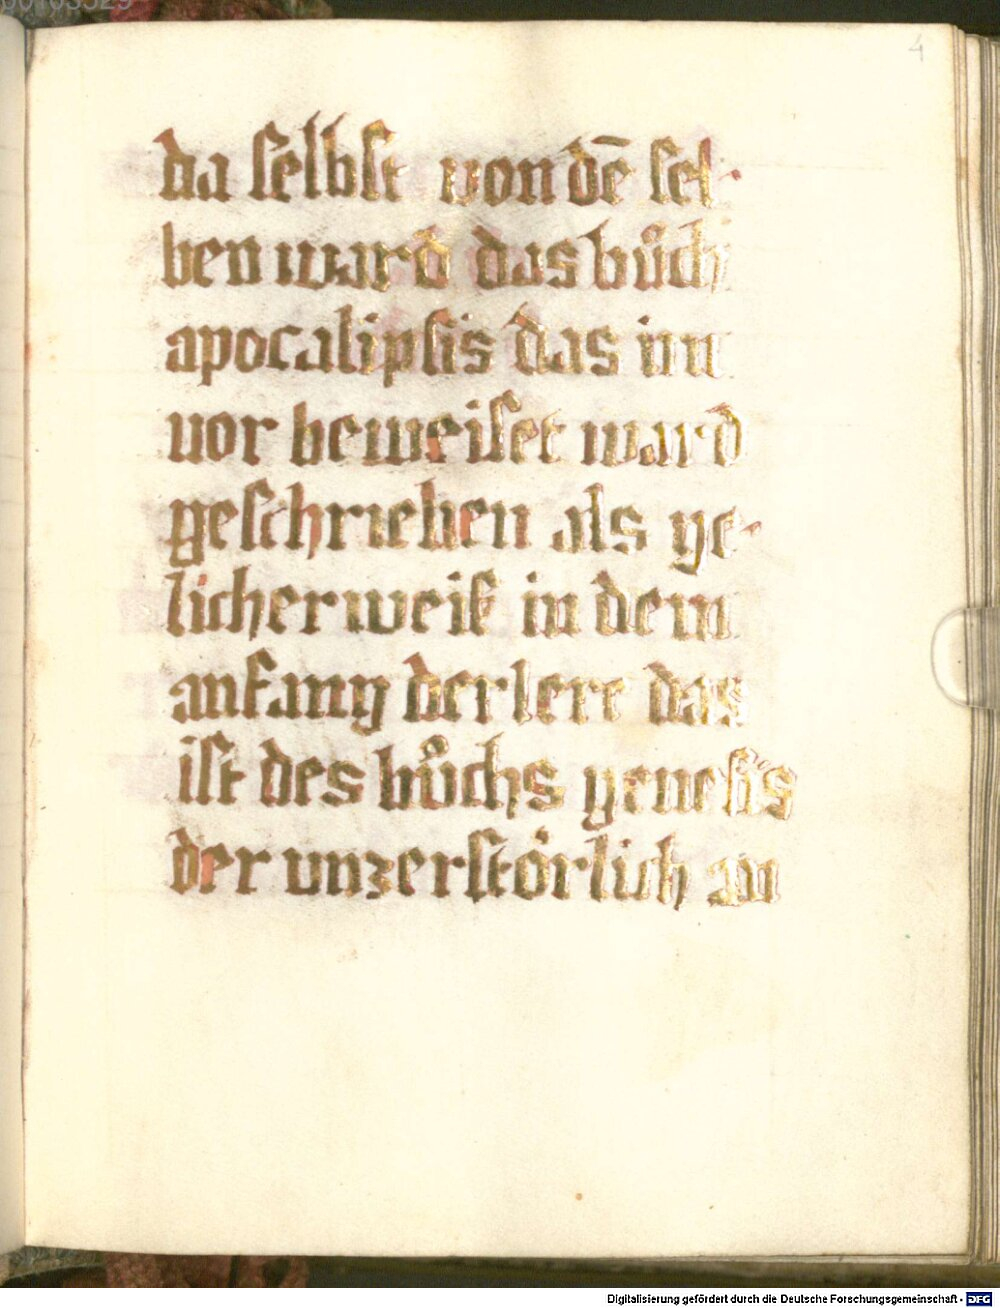 4
da selbst von dē sel-
ben ward das bůch
apocalipsis das im
vor beweiset ward
geschrieben als ge-
licherweiß in dem
anfang der lere das
ist des bůchs genesis
der unzerstörlich an
Digitalisierung gefördert durch die Deutsche Forschungsgemeinschaft - DFG